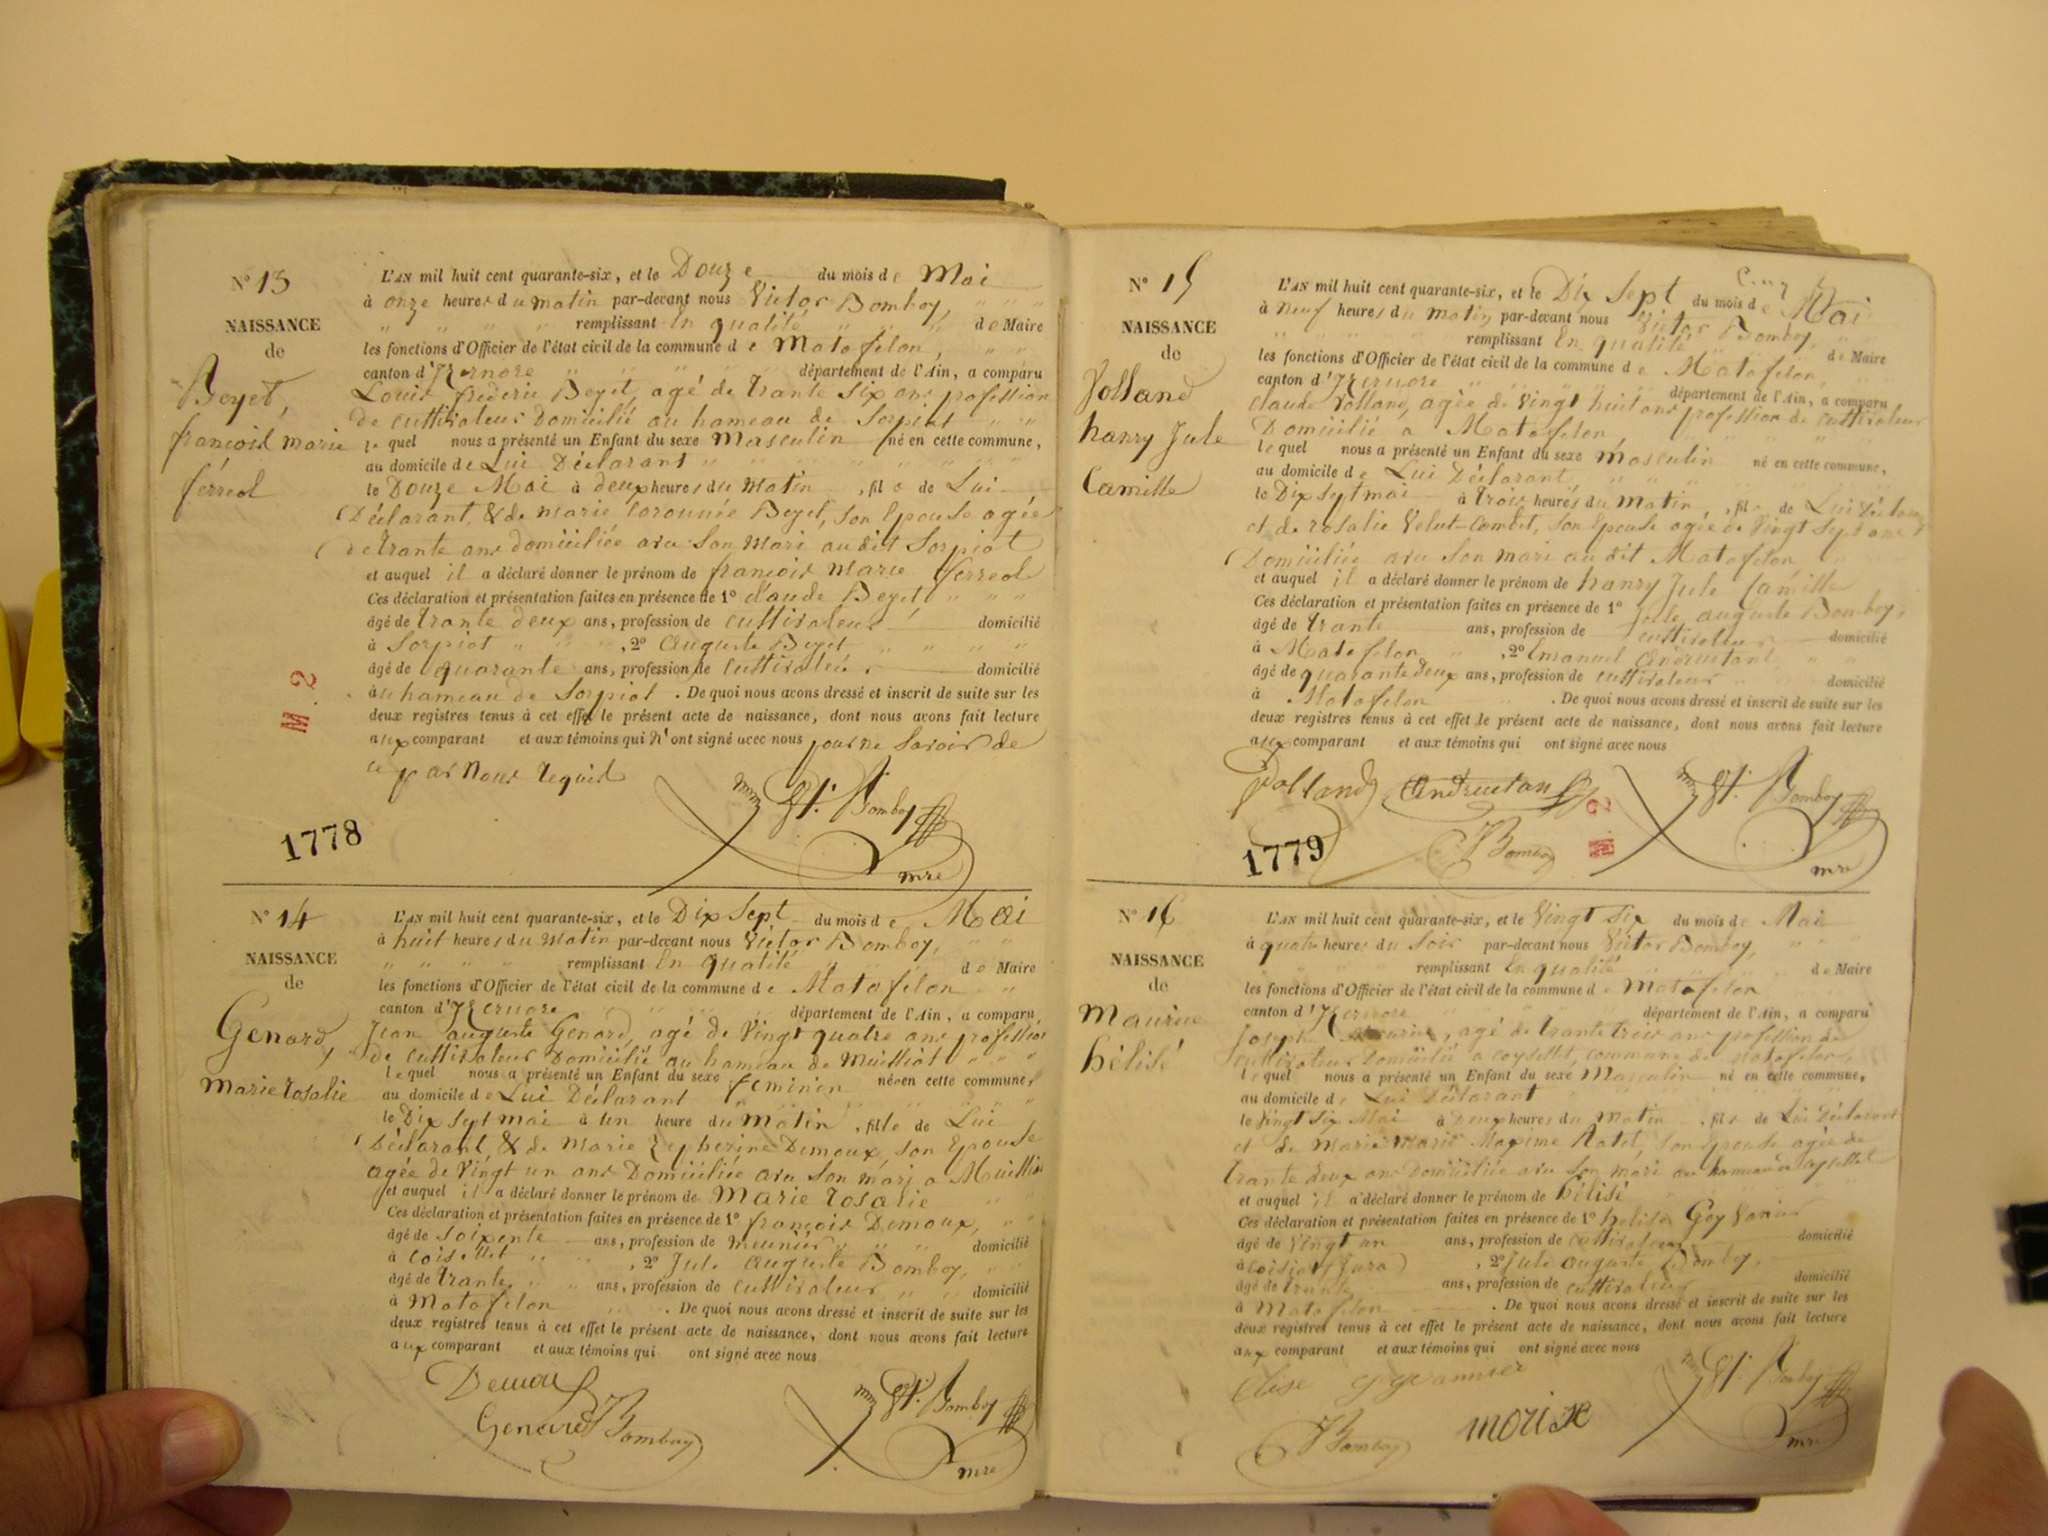 N° 13
NAISSANCE
de
Beyet,
françois marie
férreol
L'AN mil huit cent quarante-six, et le Douze du mois de Mai
à onze heures du matin par-devant nous Victor Bomboy,
remplissant En qualité de Maire
les fonctions d'Officier de l'état civil de la commune de Matafelon,
canton d'Izernore département de l'Ain, a comparu
Louis frederic Beyet, agé de trante six ans profession
de cultivateur Domicilié au hameau de Sorpiat
lequel nous a présenté un Enfant du sexe Masculin né en cette commune,
au domicile de Lui Déclarant
le Douze Mai à deux heures du Matin, fils de Lui
Déclarant, & de marie Beyet, son Epouse agée
de trante ans domiciliée avec son Mari au dit Sorpiat
et auquel il a déclaré donner le prénom de françois marie ferreol
Ces déclaration et présentation faites en présence de 1° claude Beyet
âgé de trante deux ans, profession de cultivateur domicilié
à Sorpiat, 2° Auguste Beyet
âgé de quarante ans, profession de cultivateur domicilié
au hameau de Sorpiat. De quoi nous avons dressé et inscrit de suite sur les
deux registres tenus à cet effet le présent acte de naissance, dont nous avons fait lecture
aux comparant et aux témoins qui n'ont signé avec nous pour ne savoir de
ce par nous requis
M. 2
Bomboy
mre
1778
N° 14
NAISSANCE
de
Genard,
Marie rosalie
L'AN mil huit cent quarante-six, et le Dix Sept du mois de Mai
à huit heures du matin par-devant nous Victor Bomboy,
remplissant En qualité de Maire
les fonctions d'Officier de l'état civil de la commune de Matafelon
canton d'Izernore département de l'Ain, a comparu
Jean auguste Genard, agé de vingt quatre ans profession
de cultivateur Domicilié au hameau de
lequel nous a présenté un Enfant du sexe feminin né en cette commune,
au domicile de Lui Déclarant
le Dix sept mai à un heure du matin, fille de Lui
Déclarant, & de Marie Zepherine Demoux, son Epouse
agée de vingt un ans Domiciliée avec son mari a
et auquel il a déclaré donner le prénom de Marie rosalie
Ces déclaration et présentation faites en présence de 1° françois Demoux,
âgé de soixente ans, profession de meunier domicilié
à coisellet, 2° Jule Auguste Bomboy,
âgé de trante ans, profession de cultivateur domicilié
à Matafelon. De quoi nous avons dressé et inscrit de suite sur les
deux registres tenus à cet effet le présent acte de naissance, dont nous avons fait lecture
aux comparant et aux témoins qui ont signé avec nous
Genard Bomboy
Bomboy
mre
N° 15
NAISSANCE
de
Jolland
hanry Jule
Camille
L'AN mil huit cent quarante-six, et le Dix Sept du mois de Mai
à neuf heures du matin par-devant nous Victor Bomboy,
remplissant En qualité de Maire
les fonctions d'Officier de l'état civil de la commune de Matafelon,
canton d'Izernore département de l'Ain, a comparu
claude Jolland, agée de vingt huit ans profession de cultivateur
Domicilié a Matafelon,
lequel nous a présenté un Enfant du sexe masculin né en cette commune,
au domicile de Lui Déclarant,
le Dix sept mai à trois heures du matin, fils de Lui Déclarant
et de rosalie Velut-Combet, son Epouse agée de vingt sept ans
Domiciliée avec son mari au dit Matafelon
et auquel il a déclaré donner le prénom de hanry Jule Camille
Ces déclaration et présentation faites en présence de 1° Jule auguste Bomboy,
âgé de trante ans, profession de cultivateur domicilié
à Matafelon, 2° Emanuel
âgé de quarante deux ans, profession de cultivateur domicilié
à Matafelon. De quoi nous avons dressé et inscrit de suite sur les
deux registres tenus à cet effet le présent acte de naissance, dont nous avons fait lecture
aux comparant et aux témoins qui ont signé avec nous
Jolland
Bomboy
M. 2
Bomboy
mre
1779
N° 16
NAISSANCE
de
Maurise
hélisé
L'AN mil huit cent quarante-six, et le Vingt Six du mois de Mai
à quatre heures du soir par-devant nous Victor Bomboy,
remplissant En qualité de Maire
les fonctions d'Officier de l'état civil de la commune de Matafelon
canton d'Izernore département de l'Ain, a comparu
Joseph, agé de trante trois ans profession de
cultivateur Domicilié a coysellet, commune de matafelon,
lequel nous a présenté un Enfant du sexe Masculin né en cette commune,
au domicile de Lui Déclarant
le vingt six Mai à deux heures du matin, fils de Lui Déclarant
et de Marie Maxime, son Epouse agée de
trante deux ans Domiciliée avec son mari au hameau de coysellet
et auquel il a déclaré donner le prénom de hélisé
Ces déclaration et présentation faites en présence de 1°
âgé de vingt un ans, profession de cultivateur domicilié
à (Jura), 2° Jule auguste Bomboy,
âgé de trante ans, profession de cultivateur domicilié
à Matafelon. De quoi nous avons dressé et inscrit de suite sur les
deux registres tenus à cet effet le présent acte de naissance, dont nous avons fait lecture
aux comparant et aux témoins qui ont signé avec nous
Bomboy
Bomboy
mre